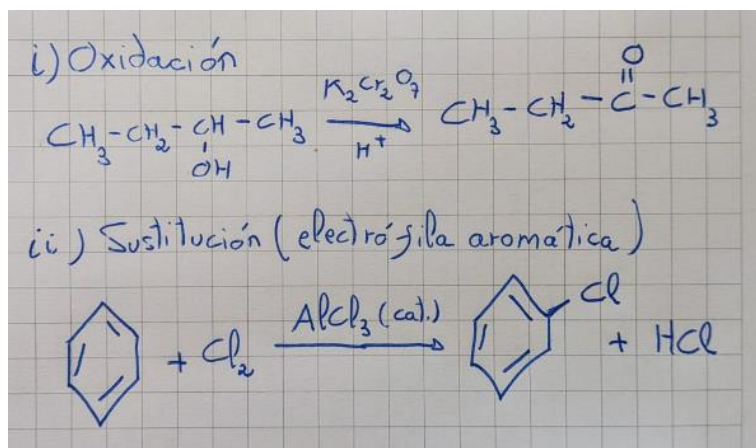 i) Oxidación
CH₃-CH₂-CH-CH₃ K₂Cr₂O₇ H⁺ CH₃-CH₂-C-CH₃
OH O
ii) Sustitución (electrófila aromática)
+ Cl₂ AlCl₃ (cat.) Cl + HCl